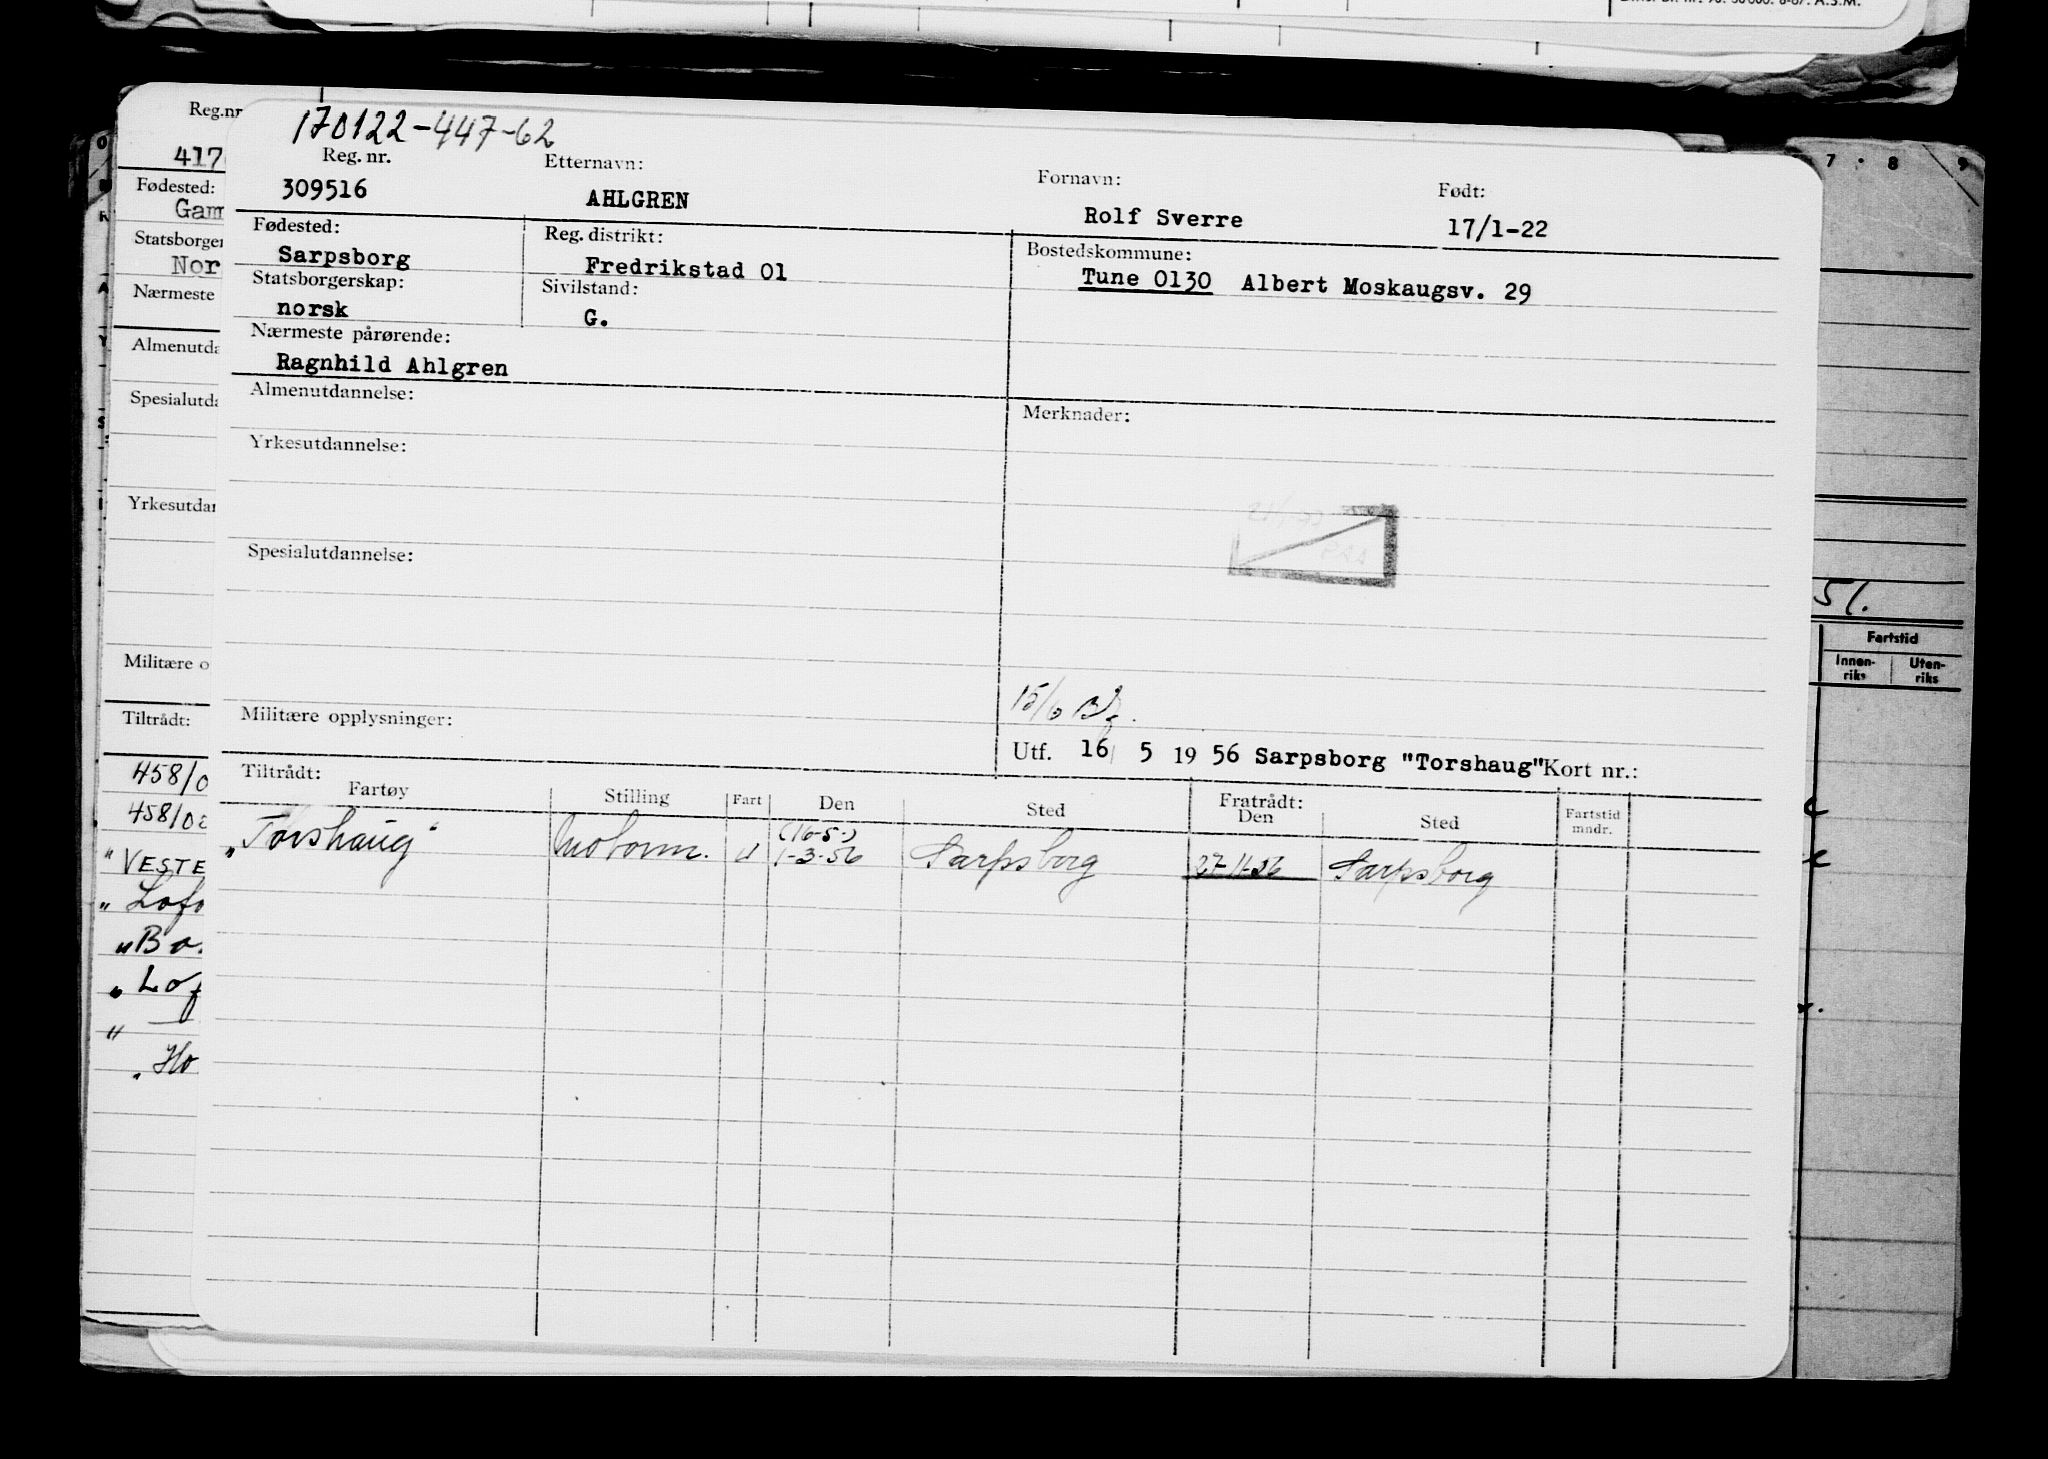 170122-447-62
Reg. nr. Etternavn: Fornavn: Født:
309516 AHLGREN Rolf Sverre 17/1-22
Fødested: Reg. distrikt: Bostedskommune:
Sarpsborg Fredrikstad 01 Tune 0130 Albert Moskaugsv. 29
Statsborgerskap: Sivilstand:
norsk G.
Nærmeste pårørende:
Ragnhild Ahlgren
Almenutdannelse: Merknader:
Yrkesutdannelse:
Spesialutdannelse:
15/6
Militære opplysninger: Utf. 16/ 5 19 56 Sarpsborg "Torshaug" Kort nr.:
Tiltrådt: Fratrådt:
Fartøy Stilling Fart Den Sted Den Sted Fartstid mndr.
(16-5-)
„Torshaug" Motorm. U 1-3-56 Sarpsborg 27-11-56 Sarpsborg
Reg.nr
417
Fødested:
Gam
Statsborger
Nor
Nærmeste
Almenutda
Spesialutda
Yrkesutdan
Militære o
Tiltrådt:
458/0
458/02
"VESTE
„Lofo
„Ba
„Lof
"
„Ho
7 · 8 9
51.
Fartstid
Innen-riks Uten-riks